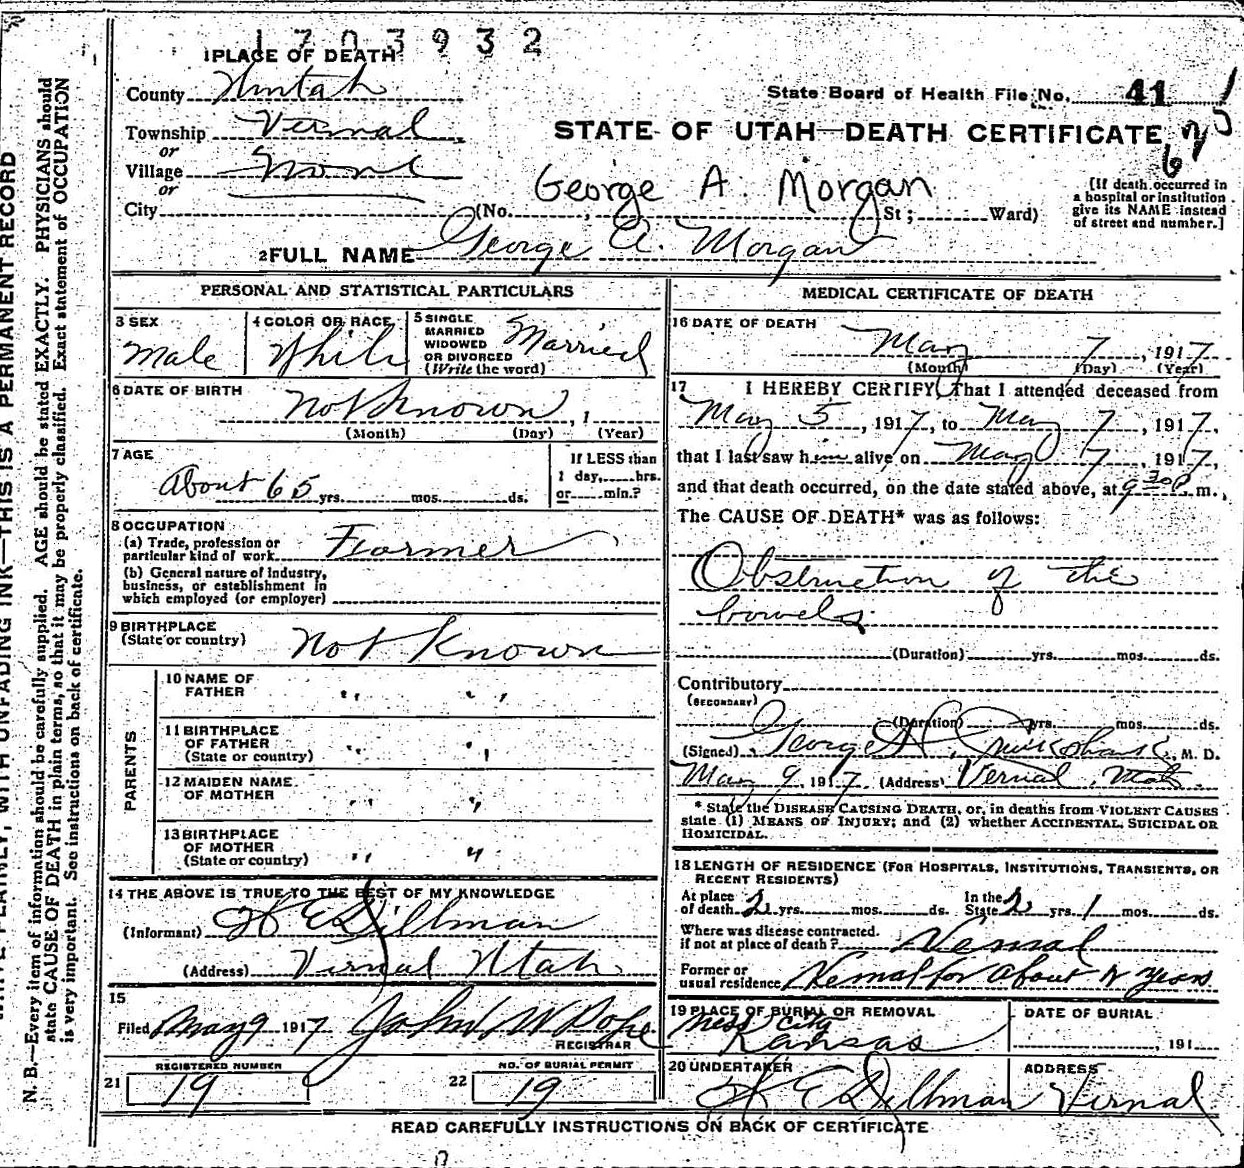 1703932
1 PLACE OF DEATH
County Uintah
State Board of Health File No. 41
Township Vernal
STATE OF UTAH—DEATH CERTIFICATE
or
Village None
or
George A. Morgan
City (No. , St; Ward)
[If death occurred in
a hospital or institution
give its NAME instead
of street and number.]
2 FULL NAME George A. Morgan
PERSONAL AND STATISTICAL PARTICULARS
3 SEX
Male
4 COLOR OR RACE
White
5 SINGLE
MARRIED
WIDOWED
OR DIVORCED
(Write the word)
Married
6 DATE OF BIRTH
Not Known , 1
(Month) (Day) (Year)
7 AGE
About 65 yrs. mos. ds.
If LESS than
1 day, hrs.
or min.?
8 OCCUPATION
(a) Trade, profession or
particular kind of work Farmer
(b) General nature of Industry,
business, or establishment in
which employed (or employer)
9 BIRTHPLACE
(State or country) Not Known
PARENTS
10 NAME OF
FATHER " "
11 BIRTHPLACE
OF FATHER
(State or country) " "
12 MAIDEN NAME
OF MOTHER " "
13 BIRTHPLACE
OF MOTHER
(State or country) " "
14 THE ABOVE IS TRUE TO THE BEST OF MY KNOWLEDGE
(Informant) Dillman
(Address) Vernal Utah
15
Filed May 9 1917 John W Pope
REGISTRAR
REGISTERED NUMBER
21 19
NO. OF BURIAL PERMIT
22 19
MEDICAL CERTIFICATE OF DEATH
16 DATE OF DEATH
May 7, 1917.
(Month) (Day) (Year)
17 I HEREBY CERTIFY, That I attended deceased from
May 5, 1917, to May 7, 1917,
that I last saw him alive on May 7, 1917,
and that death occurred, on the date stated above, at 9 30 P. m.,
The CAUSE OF DEATH* was as follows:
Obstruction of the
bowels.
(Duration) yrs. mos. ds.
Contributory
(SECONDARY)
(Duration) yrs. mos. ds.
(Signed) George , M. D.
May 9, 1917 (Address) Vernal, Utah.
* State the DISEASE CAUSING DEATH, or, in deaths from VIOLENT CAUSES
state (1) MEANS OF INJURY; and (2) whether ACCIDENTAL, SUICIDAL OR
HOMICIDAL.
18 LENGTH OF RESIDENCE (FOR HOSPITALS, INSTITUTIONS, TRANSIENTS, OR
RECENT RESIDENTS)
At place
of death 2 yrs. mos. ds.
In the
State 2 yrs. 1 mos. ds.
Where was disease contracted.
if not at place of death? Vernal
Former or
usual residence Vernal for about years
19 PLACE OF BURIAL OR REMOVAL
Ness City
Kansas
DATE OF BURIAL
, 191
20 UNDERTAKER
Dillman
ADDRESS
Vernal
READ CAREFULLY INSTRUCTIONS ON BACK OF CERTIFICATE
WITH UNFADING INK—THIS IS A PERMANENT RECORD
N. B.—Every item of information should be carefully supplied. AGE should be stated EXACTLY. PHYSICIANS should
state CAUSE OF DEATH in plain terms, so that it may be properly classified. Exact statement of OCCUPATION
is very important. See instructions on back of certificate.